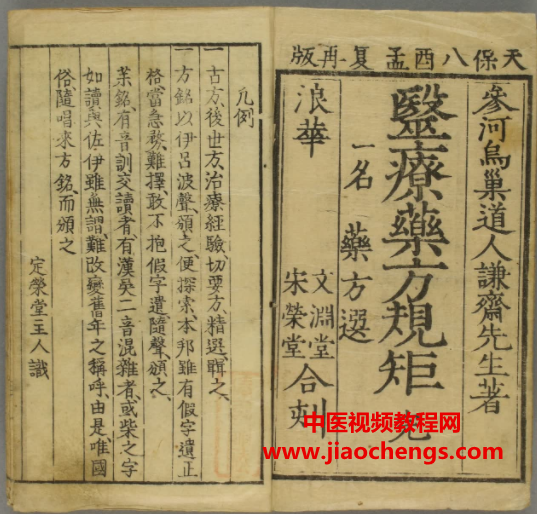 天保八酉孟夏再版
參河鳥巢道人謙齋先生著
醫療藥方規矩 完
一名 藥方選
浪華
文淵堂
宋榮堂
合刻
凡例
一古方後世方治療經驗切要方精選輯之
一方銘以伊呂波聲頒之便探索本邦雖有假字遣正
格當急務難擇敢不抱假字遣隨聲頒之
銘有音訓交讀者有漢吳二音混雜者或柴之字
如讀與佐伊雖無謂難改變舊年之稱呼由是唯國
俗隨唱來方銘而頒之
定榮堂主人識
中医视频教程网
www.jiaochengs.com